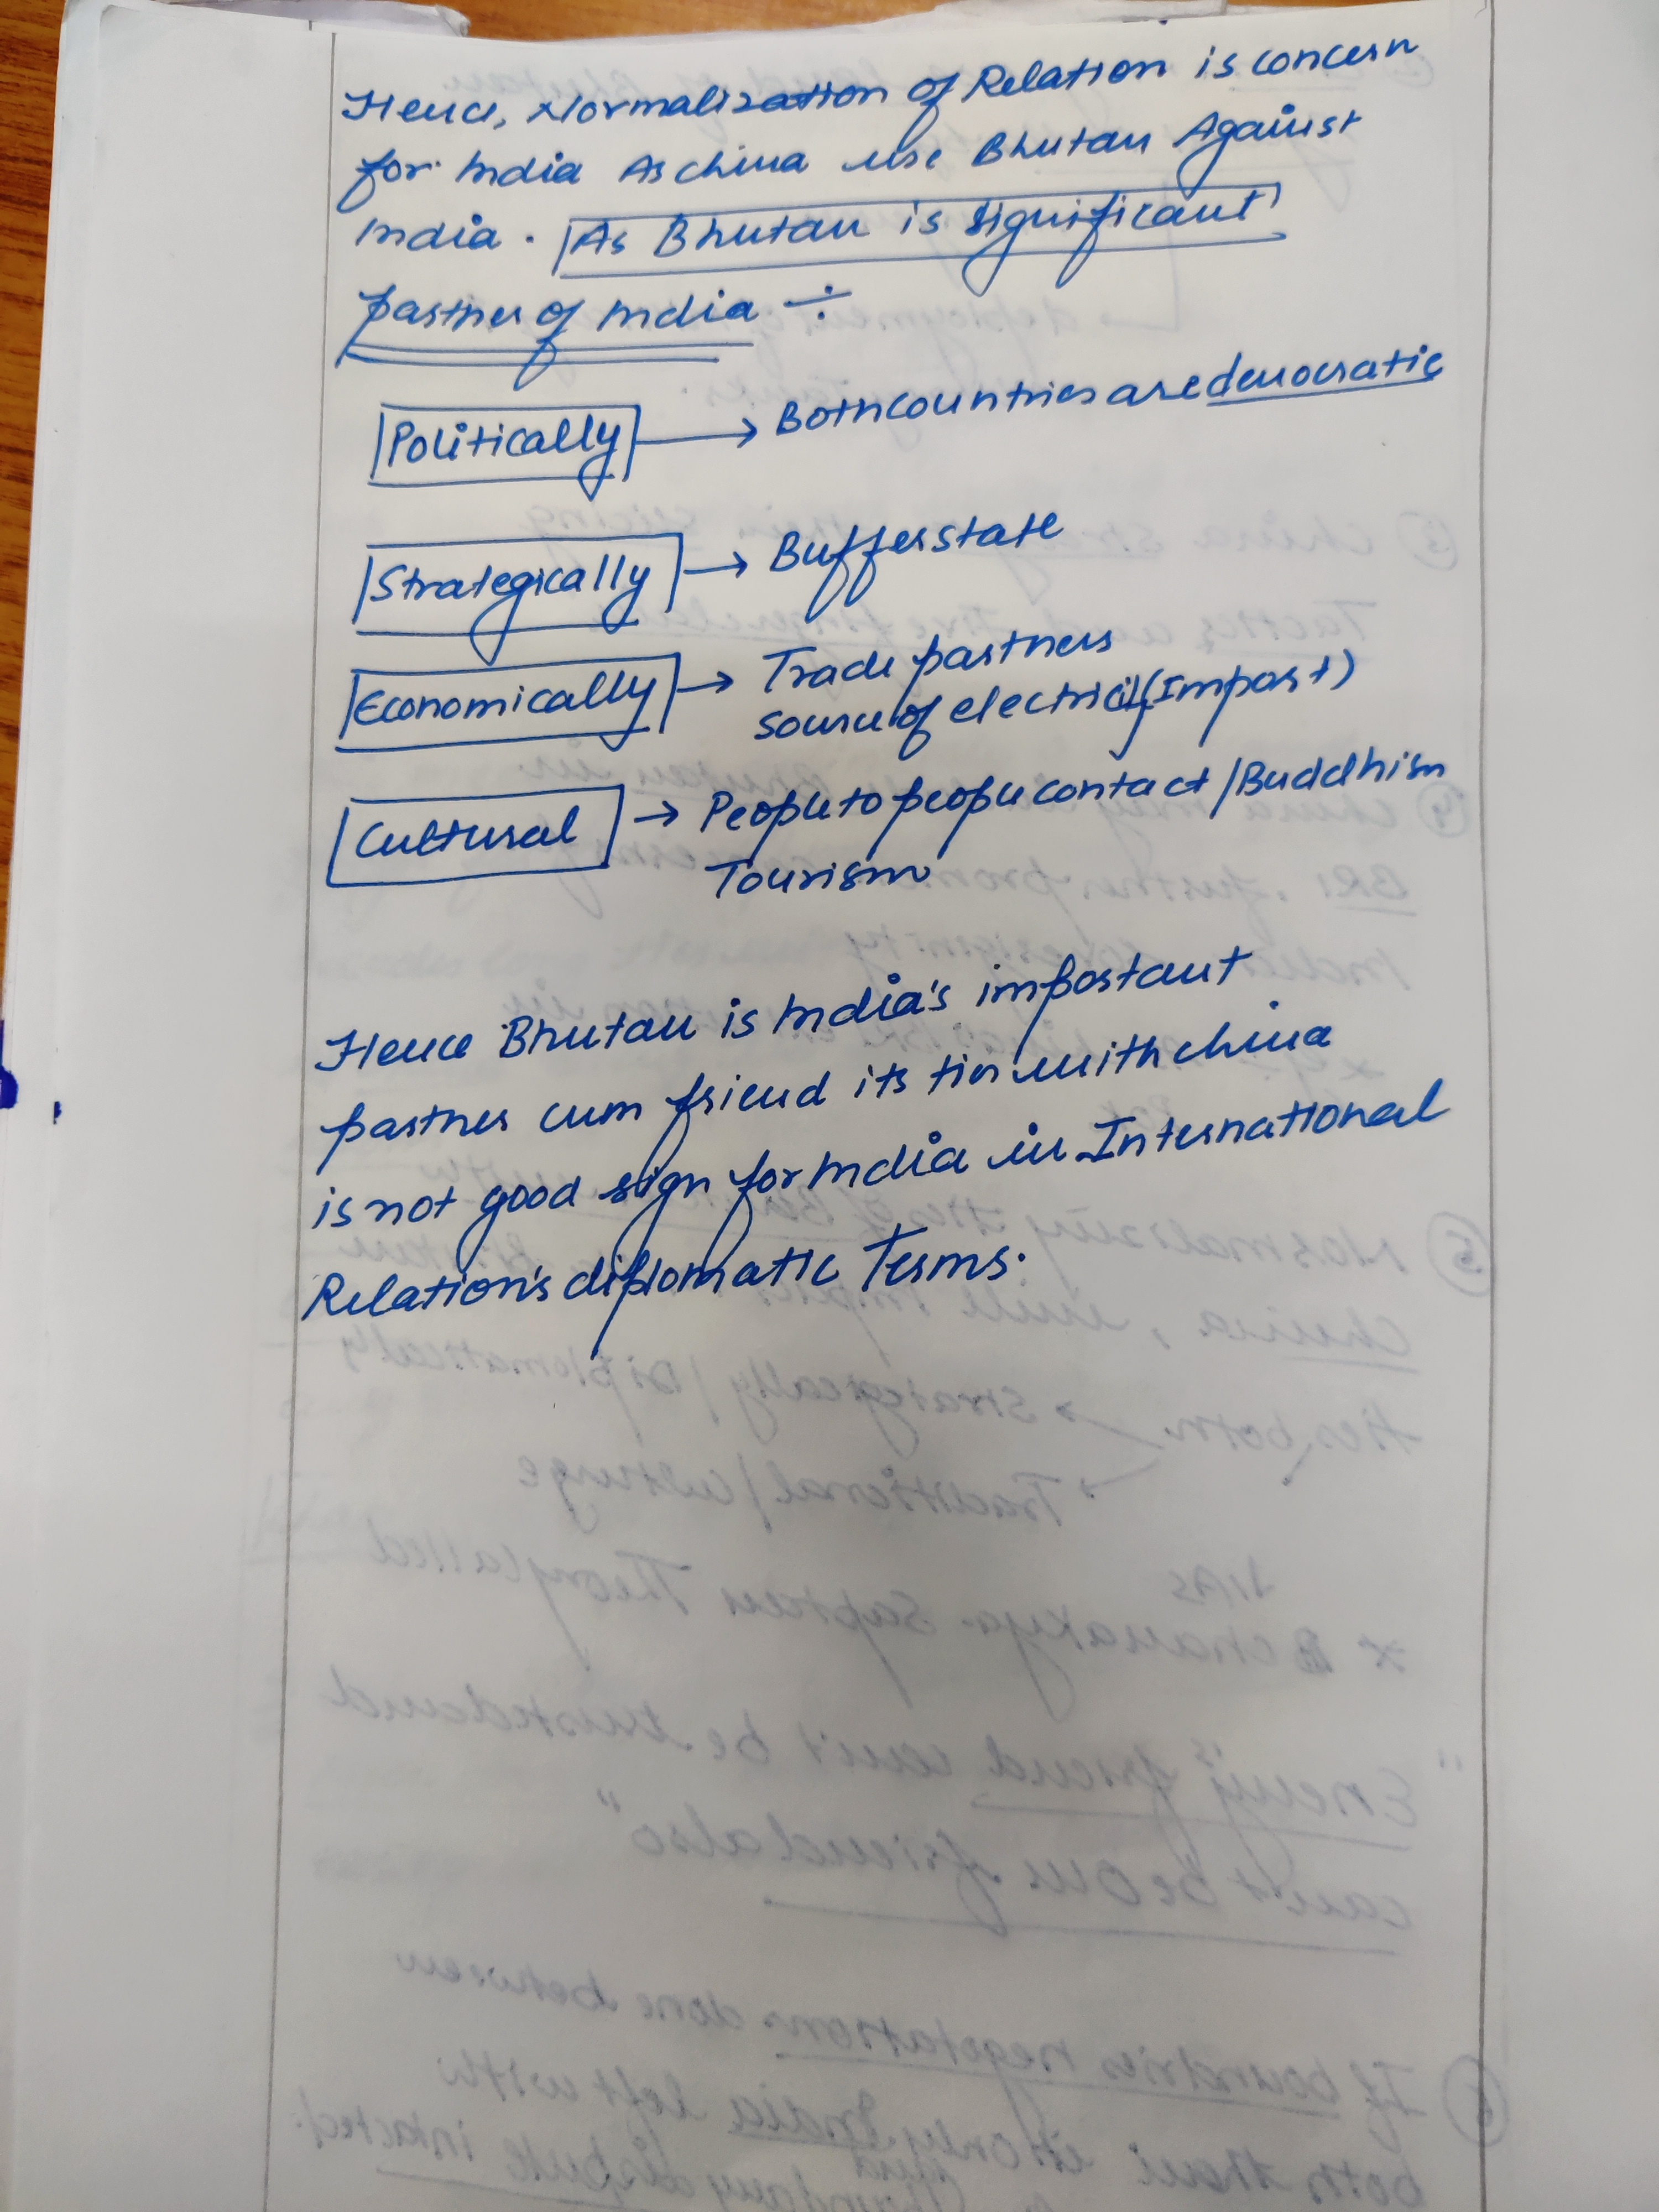 Hence, Normalization of Relation is concern
for India As china use Bhutan Against
India. As Bhutan is significant
partner of India ÷
Politically → Both countries are democratic
Strategically → Buffer state
Economically → Trade partners
Source of electricity (Import)
Cultural → People to people contact / Buddhism
Tourism
Hence Bhutan is India's important
partner cum friend its ties with china
is not good sign for India in International
Relation's diplomatic Terms.